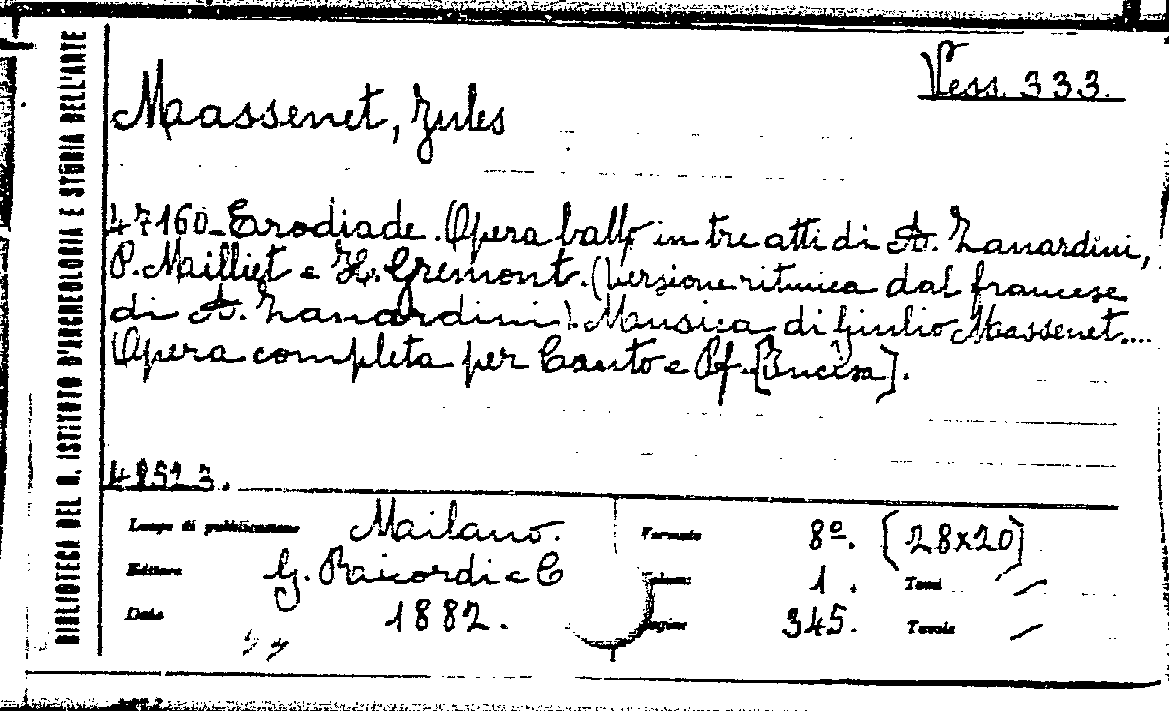 BIBLIOTECA DEL R. ISTITUTO D'ARCHEOLOGIA E STORIA DELL'ARTE
Vess. 333.
Massenet, Jules
47160 - Erodiade. Opera ballo in tre atti di A. Zanardini,
P. Milliet e H. Gremont. (Versione ritmica dal francese
di A. Zanardini). Musica di Giulio Massenet....
Opera completa per Canto e Pf.
48523.
Luogo di pubblicazione Milano.
Formato 8º. [28x20]
Editore G. Ricordi e C
Volumi 1. Tomi /
Data 1882.
Pagine 345. Tavole /